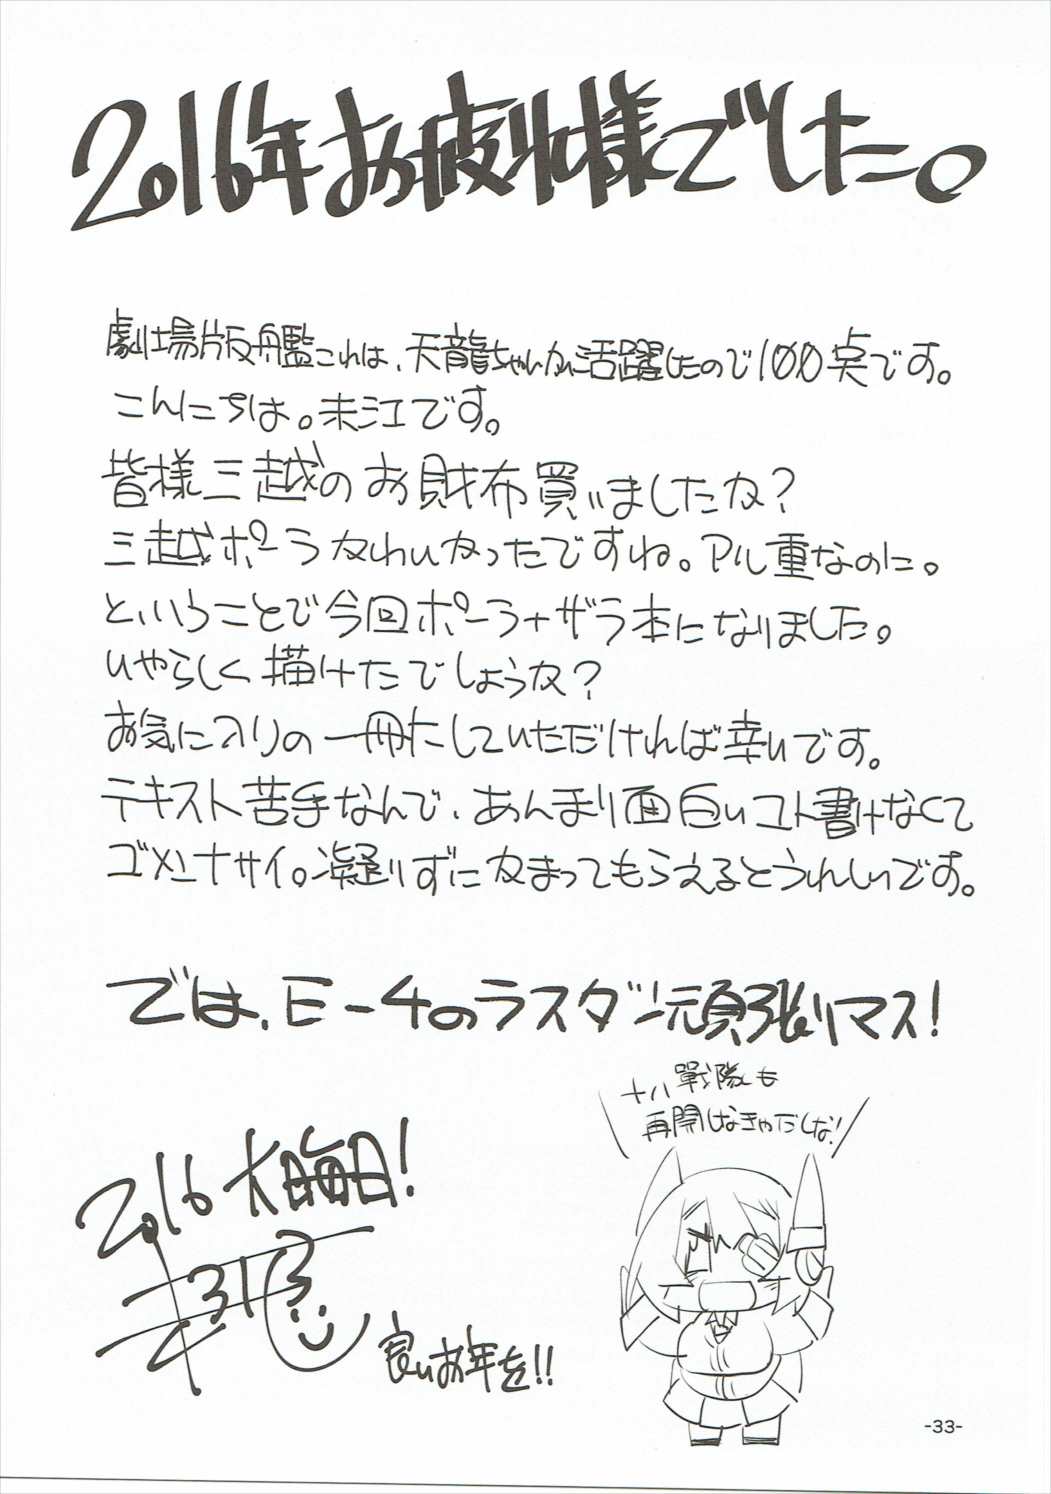 2016年お疲れ様でした。
劇場版艦これは、天龍ちゃんが活躍したので100点です。
こんにちは。未江です。
皆様三越のお財布買いましたか？
三越ポーラかわいかったですね。アル重なのに。
ということで今回ポーラ+ザラ本になりました。
いやらしく描けたでしょうか？
お気に入りの一冊にしていただければ幸いです。
テキスト苦手なんで、あんまり面白いコト書けなくて
ゴメンナサイ。凝りずにかまってもらえるとうれしいです。
では、E-4のラスダン頑張りマス！
十八戰隊も
再開しなきゃだしな！
2016大晦日！
良いお年を!!
-33-